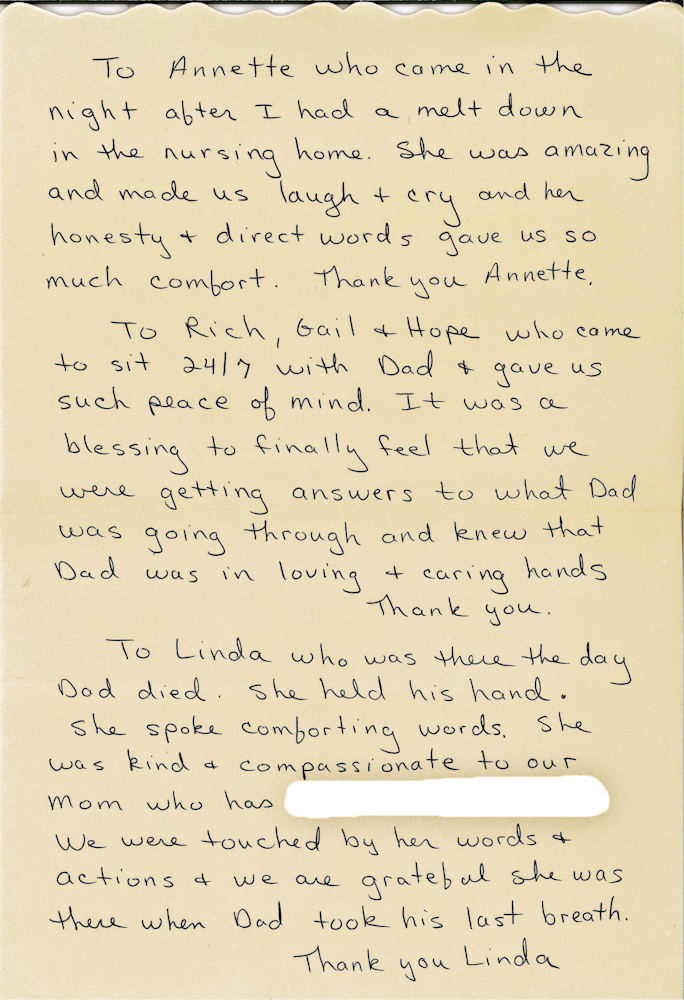 To Annette who came in the
night after I had a melt down
in the nursing home. She was amazing
and made us laugh + cry and her
honesty + direct words gave us so
much comfort. Thank you Annette.
To Rich, Gail + Hope who came
to sit 24/7 with Dad + gave us
such peace of mind. It was a
blessing to finally feel that we
were getting answers to what Dad
was going through and knew that
Dad was in loving + caring hands
Thank you.
To Linda who was there the day
Dad died. She held his hand.
She spoke comforting words. She
was kind + compassionate to our
Mom who has
We were touched by her words +
actions + we are grateful she was
there when Dad took his last breath.
Thank you Linda